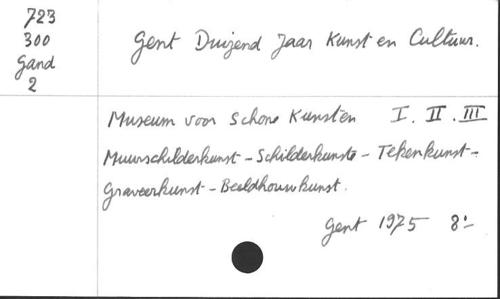 723
300
Gand
2
Gent Duizend Jaar Kunst en Cultuur.
Museum voor Schone Kunsten I. II. III
Muurschilderkunst - Schilderkunst - Tekenkunst -
Graveerkunst - Beeldhouwkunst.
Gent 1975 8:-